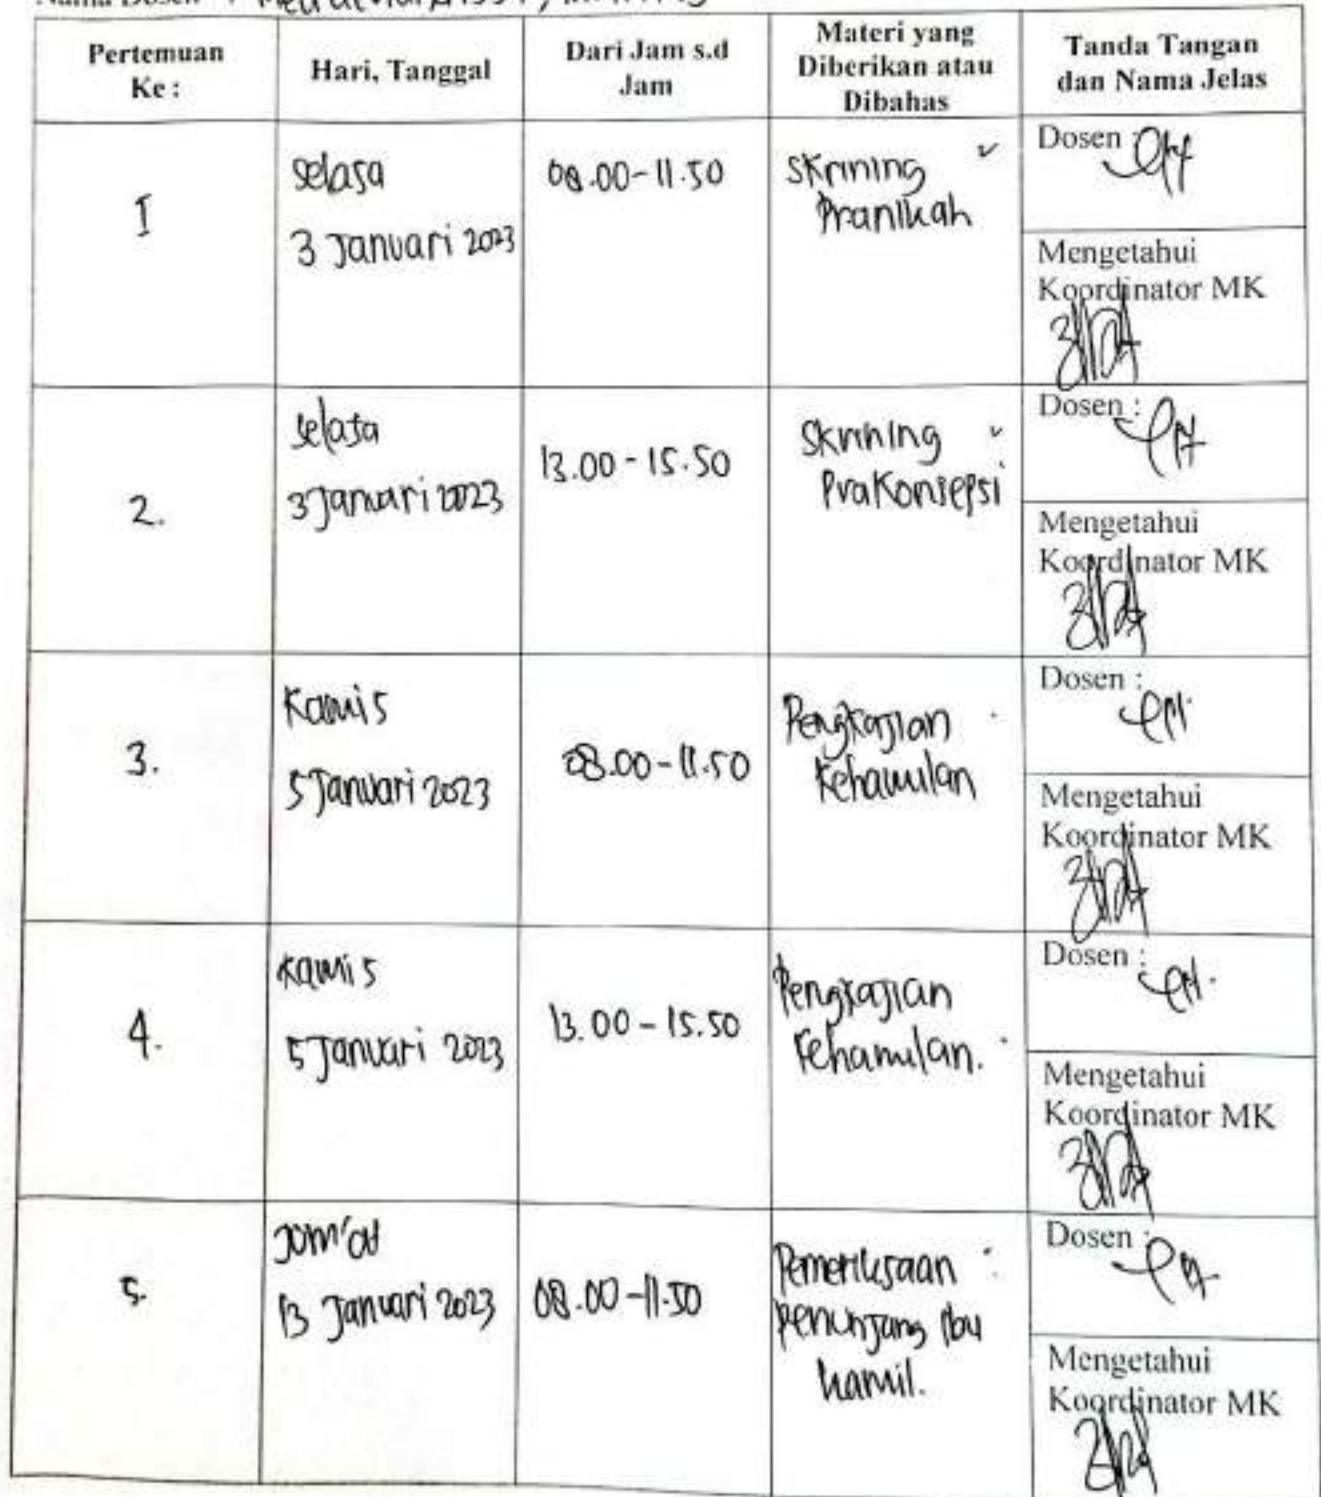 Nama Dosen :
Pertemuan
Ke :
Hari, Tanggal
Dari Jam s.d
Jam
Materi yang
Diberikan atau
Dibahas
Tanda Tangan
dan Nama Jelas
I
Selasa
3 Januari 2023
08.00-11.50
Skrining
Pranikah
Dosen :
Mengetahui
Koordinator MK
2.
Selasa
3 Januari 2023
13.00-15.50
Skrining
Prakonsepsi
Dosen :
Mengetahui
Koordinator MK
3.
Kamis
5 Januari 2023
08.00-11.50
Pengkajian
Kehamilan
Dosen :
Mengetahui
Koordinator MK
4.
Kamis
5 Januari 2023
13.00-15.50
Pengkajian
Kehamilan.
Dosen :
Mengetahui
Koordinator MK
5.
Jum'at
13 Januari 2023
08.00-11.50
Pemeriksaan
penunjang ibu
hamil.
Dosen :
Mengetahui
Koordinator MK